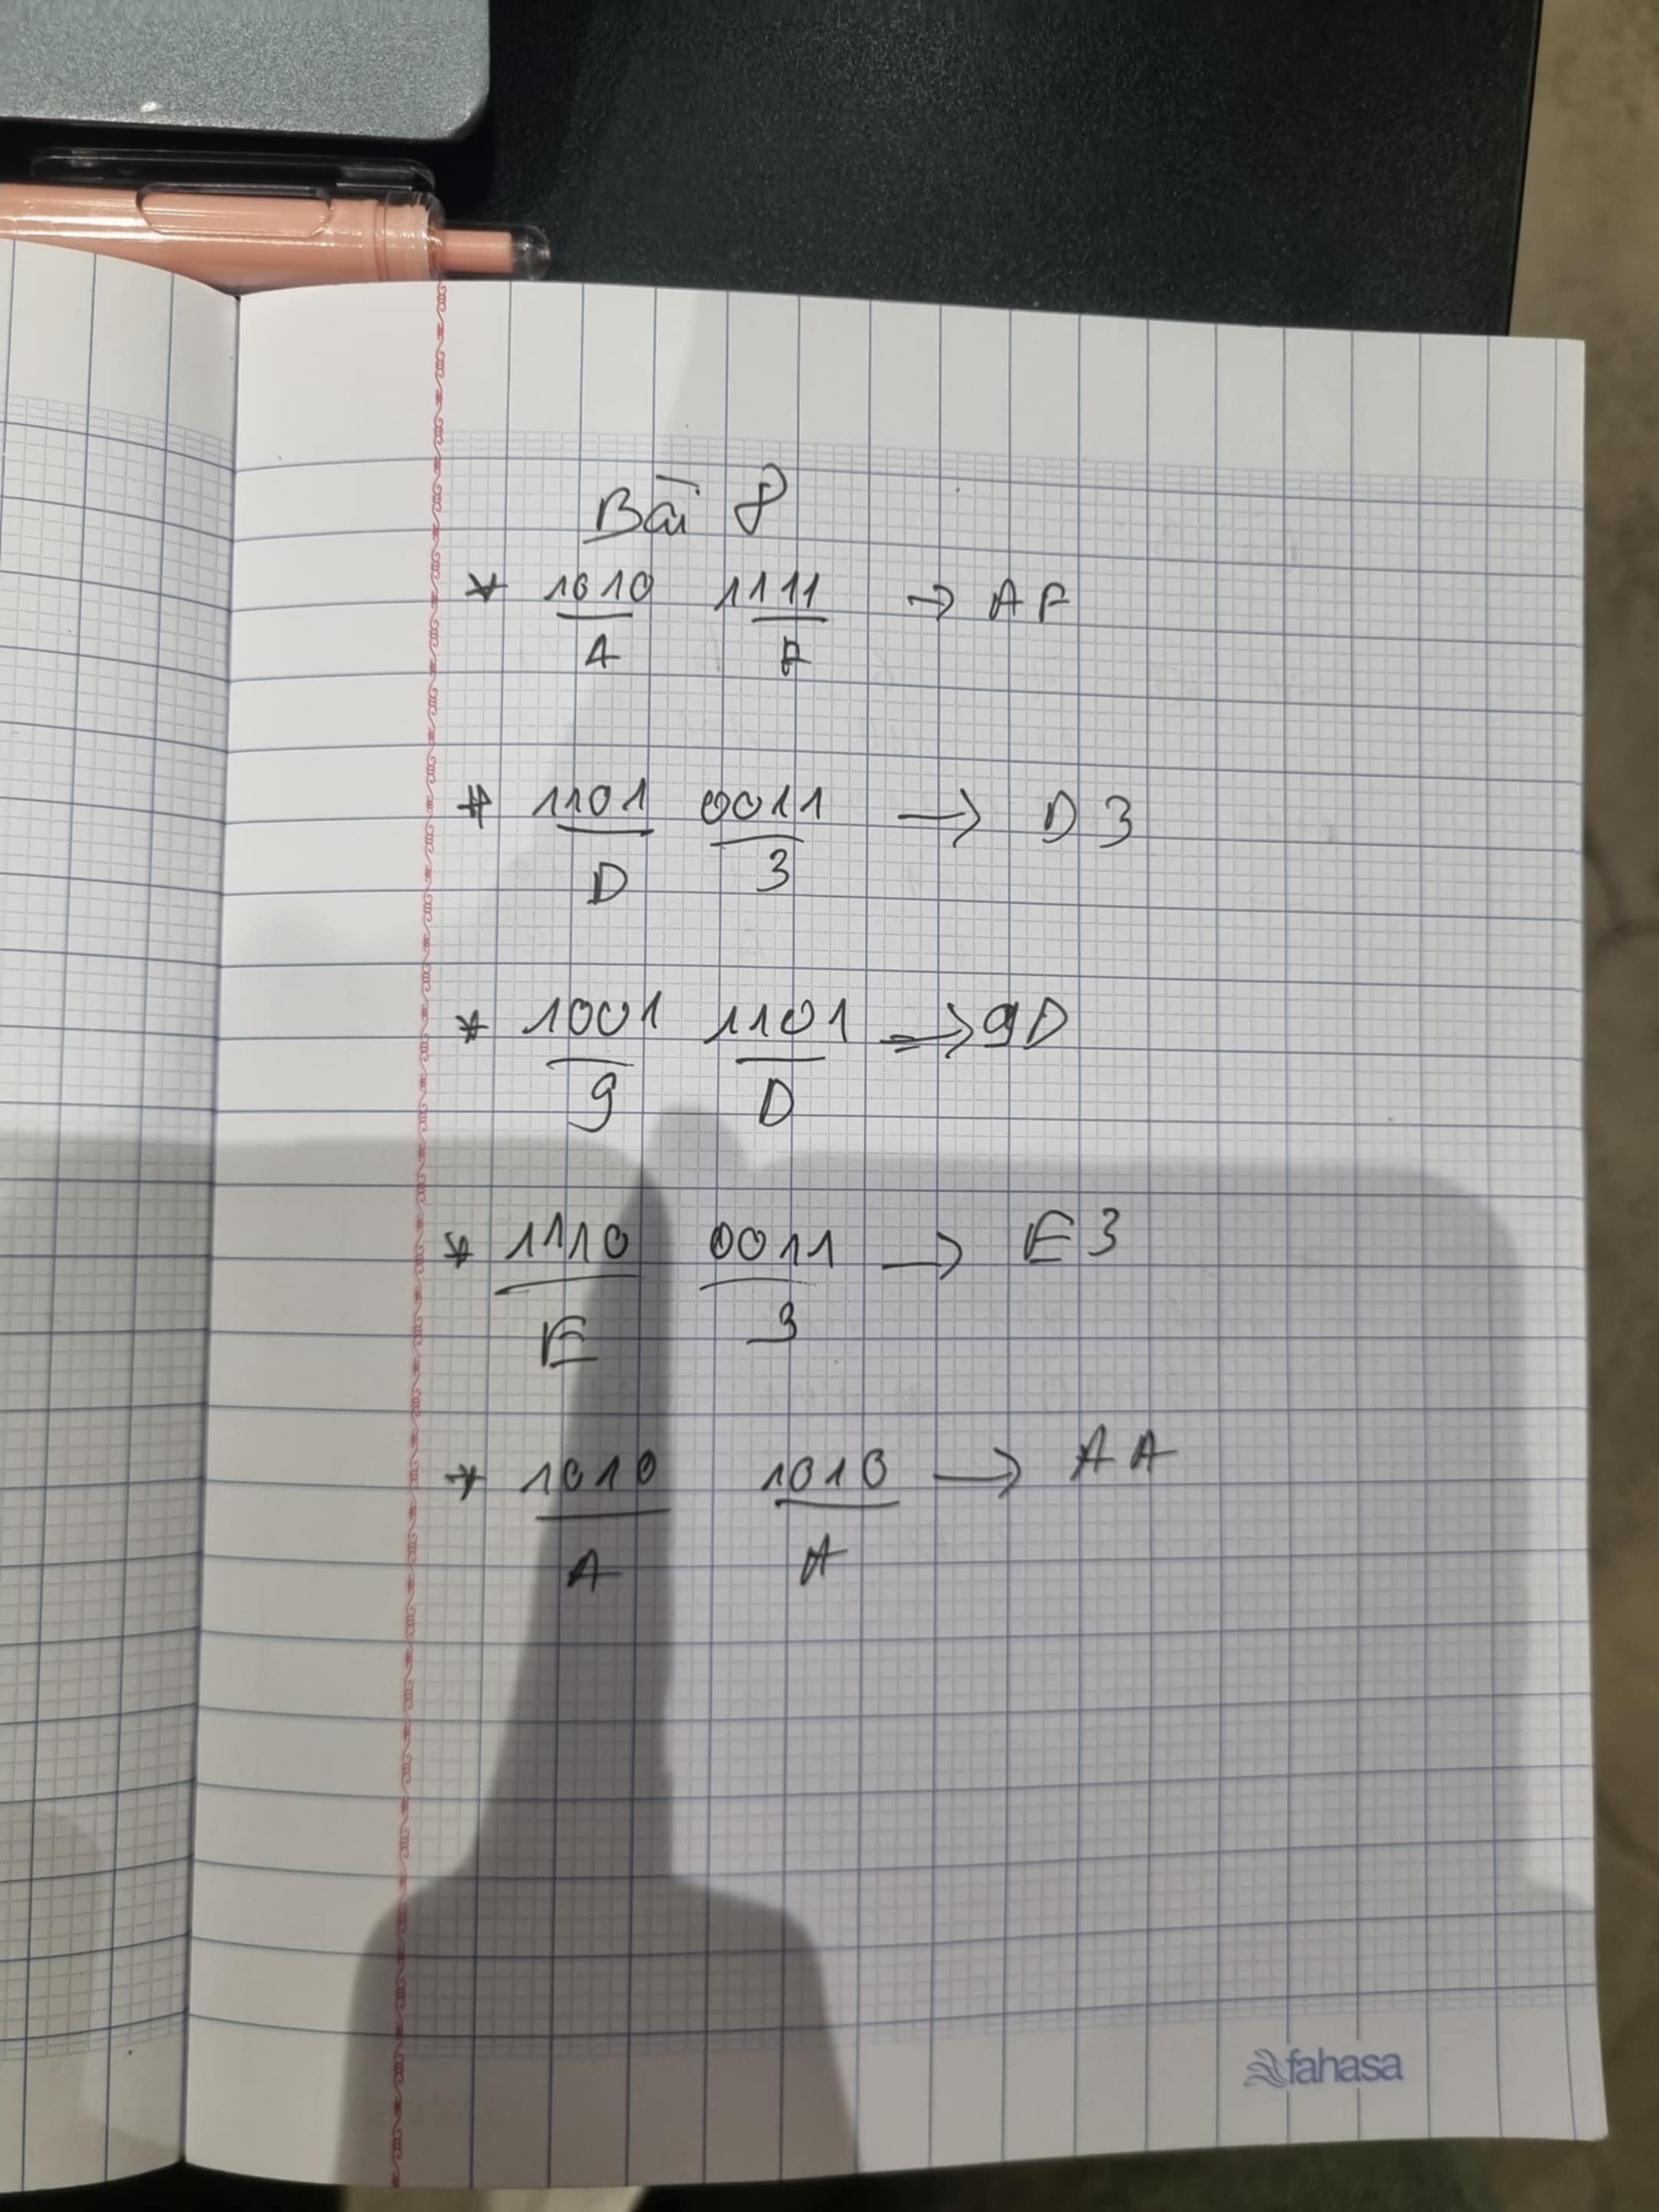 Bài 8
* 1010 1111 → AF
A F
* 1101 0011 → D3
D 3
* 1001 1101 => 9D
9 D
* 1110 0011 → E3
E 3
* 1010 1010 → AA
A A
fahasa